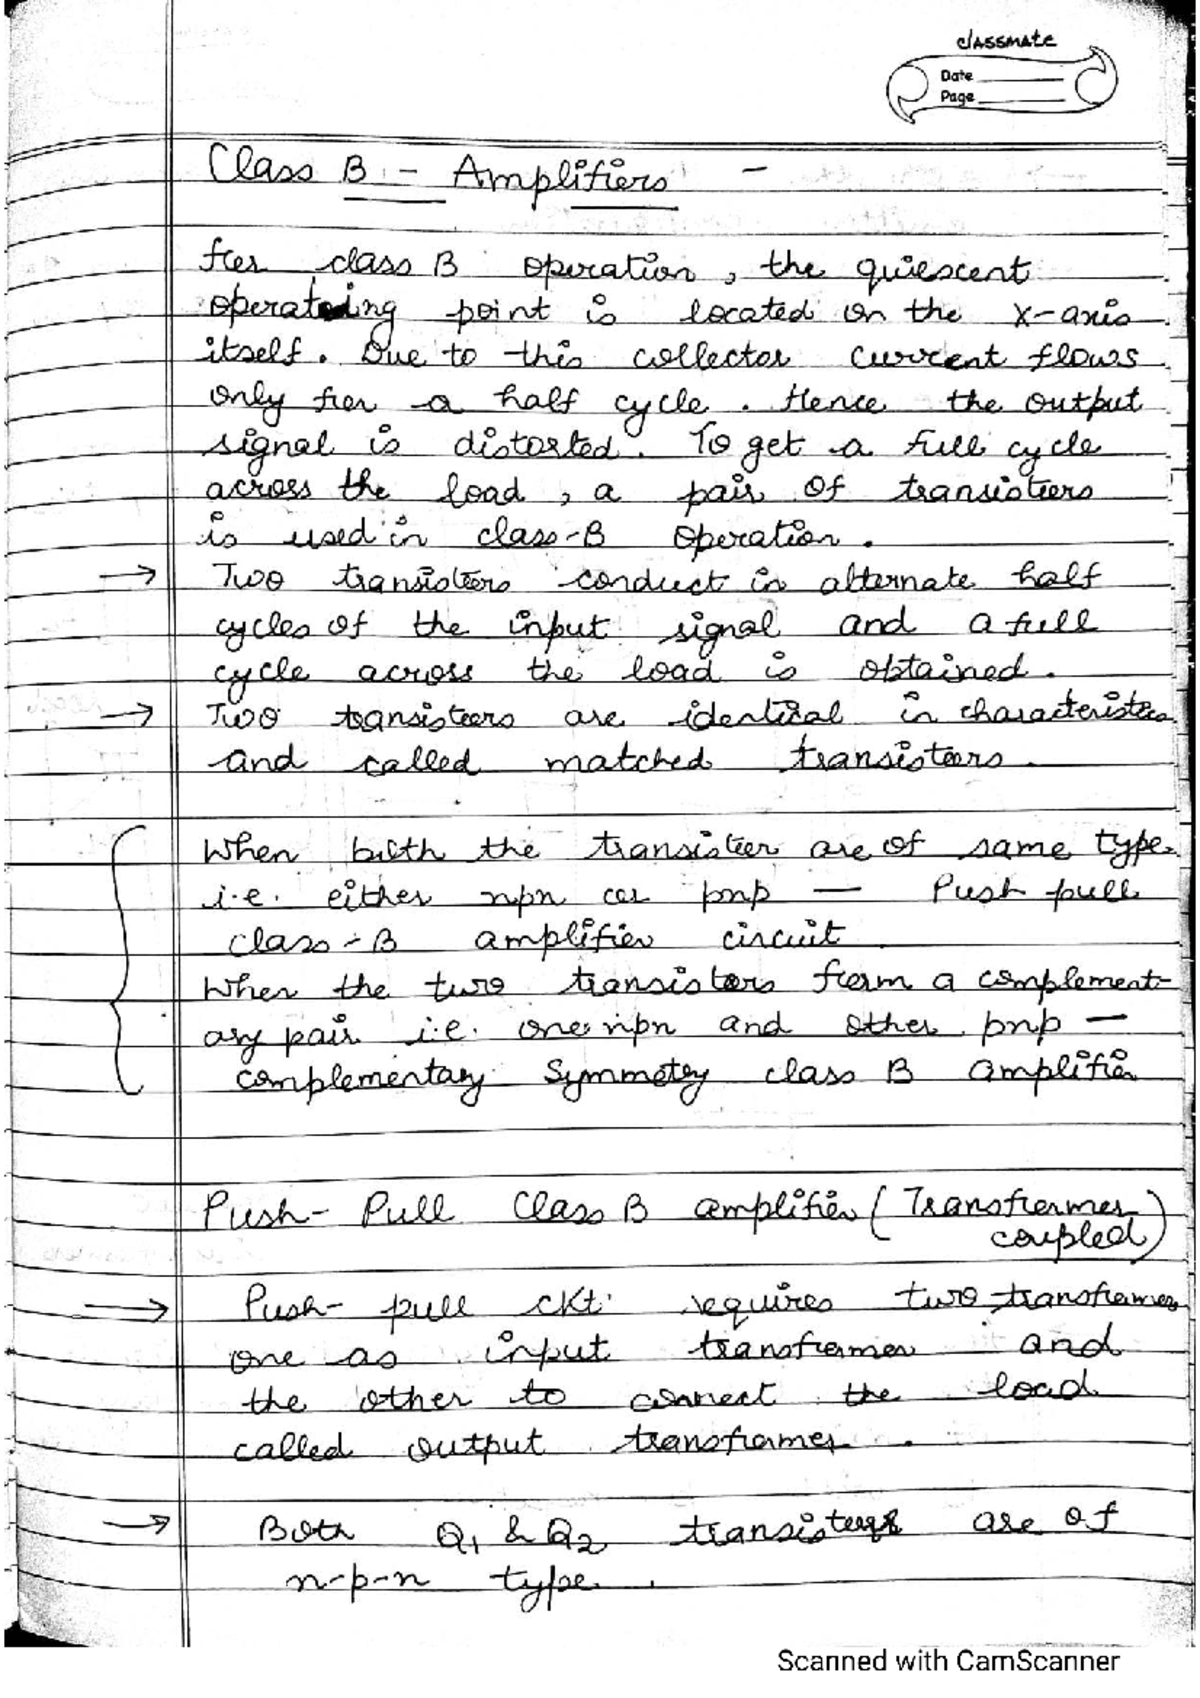 classmate
Date
Page
Class B - Amplifiers -
For class B operation, the quiescent
operating point is located on the X-axis
itself. Due to this collector current flows
only for a half cycle. Hence the output
signal is distorted. To get a full cycle
across the load, a pair of transistors
is used in class-B operation.
→ Two transistors conduct in alternate half
cycles of the input signal and a full
cycle across the load is obtained.
→ Two transistors are identical in characteristics
and called matched transistors.
When both the transistor are of same type
i.e. either npn or pnp — Push pull
class-B amplifier circuit
When the two transistors form a complement-
ary pair i.e. one npn and other pnp —
complementary Symmetry class B amplifier
Push-Pull Class B amplifier (Transformer
coupled)
→ Push-pull ckt. requires two transformer
one as input transformer and
the other to connect the load
called output transformer.
→ Both Q1 & Q2 transistors are of
n-p-n type.
Scanned with CamScanner